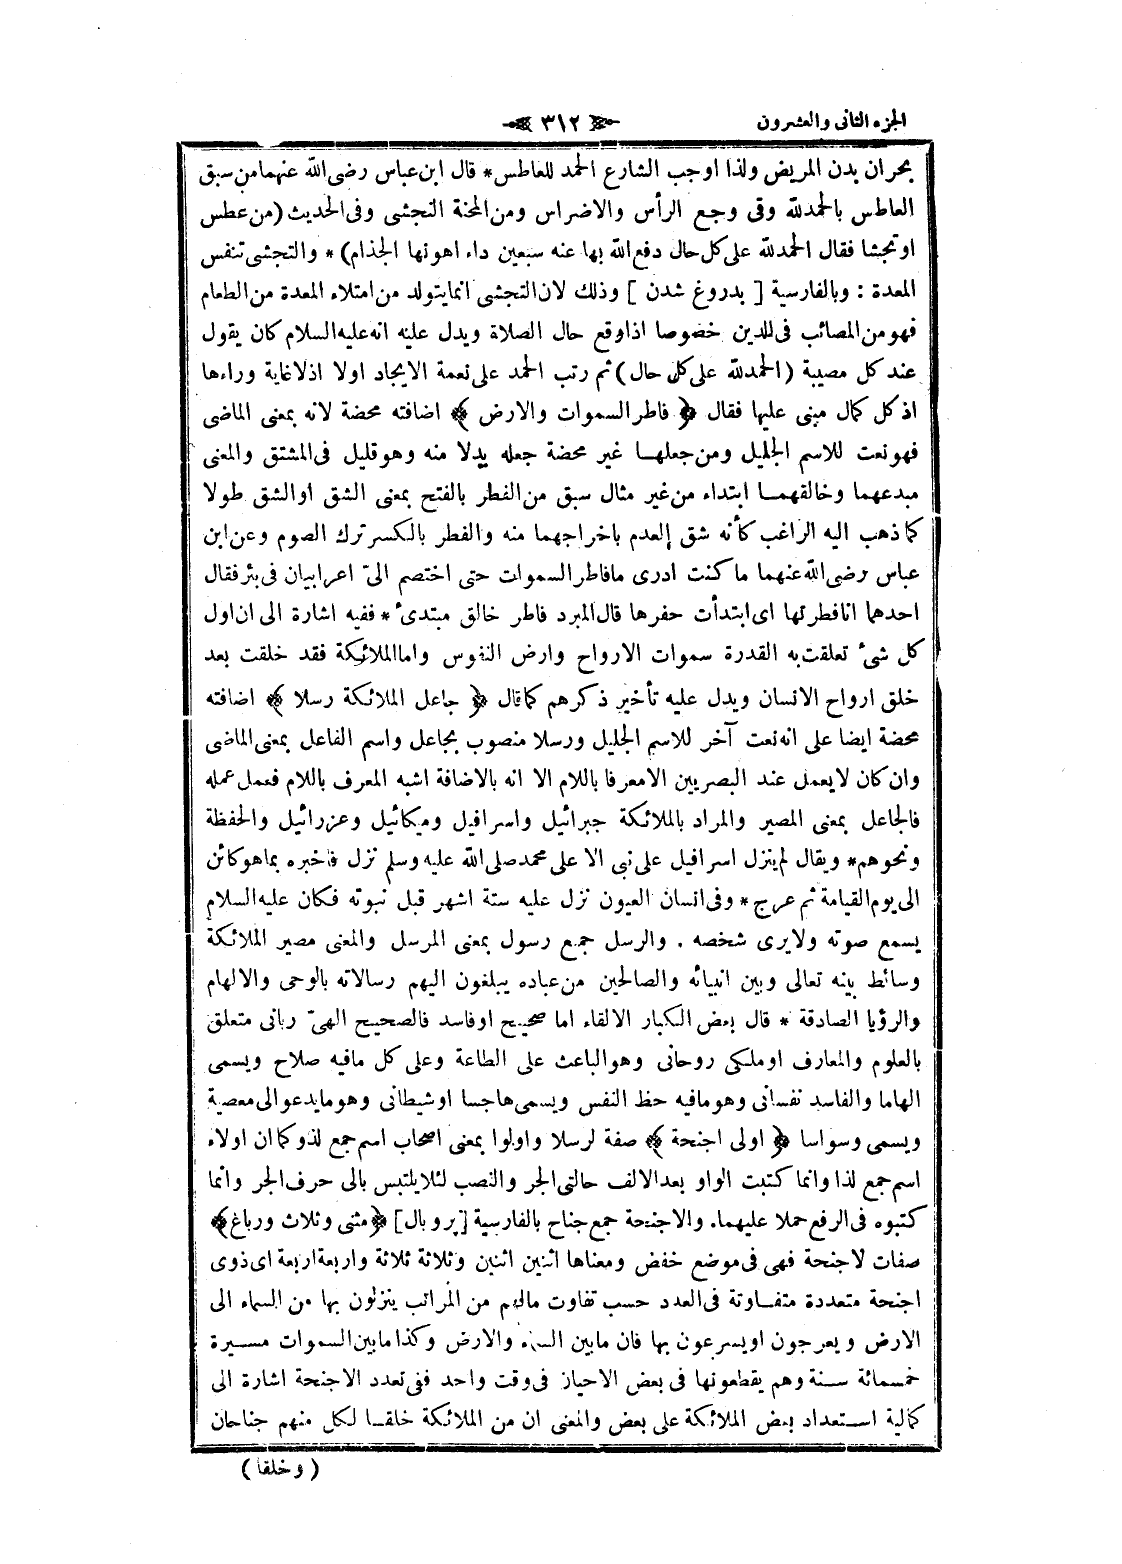 الجزء الثانى والعشرون
٣١٢
بحران بدن المريض ولذا اوجب الشارع الحمد للعاطس* قال ابن عباس رضى الله عنهما من سبق
العاطس بالحمدلله وقى وجع الرأس والاضراس ومن المحنة التجشى وفى الحديث (من عطس
او تجشا فقال الحمدلله على كل حال دفع الله بها عنه سبعين داء اهونها الجذام)* والتجشى تنفس
المعدة : وبالفارسية [ بدروغ شدن ] وذلك لان التجشى انما يتولد من امتلاء المعدة من الطعام
فهو من المصائب فى الدين خصوصا اذا وقع حال الصلاة ويدل عليه انه عليه السلام كان يقول
عند كل مصيبة (الحمدلله على كل حال) ثم رتب الحمد على نعمة الايجاد اولا اذ لاغاية وراءها
اذ كل كمال مبنى عليها فقال ﴿ فاطر السموات والارض ﴾ اضافته محضة لانه بمعنى الماضى
فهو نعت للاسم الجليل ومن جعلها غير محضة جعله بدلا منه وهو قليل فى المشتق والمعنى
مبدعهما وخالقهما ابتداء من غير مثال سبق من الفطر بالفتح بمعنى الشق او الشق طولا
كما ذهب اليه الراغب كأنه شق العدم باخراجهما منه والفطر بالكسر ترك الصوم وعن ابن
عباس رضى الله عنهما ما كنت ادرى ما فاطر السموات حتى اختصم الىّ اعرابيان فى بئر فقال
احدهما انا فطرتها اى ابتدأت حفرها قال المبرد فاطر خالق مبتدئ * ففيه اشارة الى ان اول
كل شئ تعلقت به القدرة سموات الارواح وارض النفوس واما الملائكة فقد خلقت بعد
خلق ارواح الانسان ويدل عليه تأخير ذكرهم كما قال ﴿ جاعل الملائكة رسلا ﴾ اضافته
محضة ايضا على انه نعت آخر للاسم الجليل ورسلا منصوب بجاعل واسم الفاعل بمعنى الماضى
وان كان لايعمل عند البصريين الا معرفا باللام الا انه بالاضافة اشبه المعرف باللام فعمل عمله
فالجاعل بمعنى المصير والمراد بالملائكة جبرائيل واسرافيل وميكائيل وعزرائيل والحفظة
ونحوهم* ويقال لم ينزل اسرافيل على نبى الا على محمد صلى الله عليه وسلم نزل فاخبره بما هو كائن
الى يوم القيامة ثم عرج* وفى انسان العيون نزل عليه ستة اشهر قبل نبوته فكان عليه السلام
يسمع صوته ولايرى شخصه . والرسل جمع رسول بمعنى المرسل والمعنى مصير الملائكة
وسائط بينه تعالى وبين انبيائه والصالحين من عباده يبلغون اليهم رسالاته بالوحى والالهام
والرؤيا الصادقة * قال بعض الكبار الالقاء اما صحيح او فاسد فالصحيح الهىّ ربانى متعلق
بالعلوم والمعارف او ملكى روحانى وهو الباعث على الطاعة وعلى كل مافيه صلاح ويسمى
الهاما والفاسد نفسانى وهو مافيه حظ النفس ويسمى هاجسا او شيطانى وهو مايدعو الى معصية
ويسمى وسواسا ﴿ اولى اجنحة ﴾ صفة لرسلا واولوا بمعنى اصحاب اسم جمع لذو كما ان اولاء
اسم جمع لذا وانما كتبت الواو بعد الالف حالتى الجر والنصب لئلا يلتبس بالى حرف الجر وانما
كتبوه فى الرفع حملا عليهما. والاجنحة جمع جناح بالفارسية [پر وبال] ﴿ مثنى وثلاث ورباع﴾
صفات لاجنحة فهى فى موضع خفض ومعناها اثنين اثنين وثلاثة ثلاثة واربعة اربعة اى ذوى
اجنحة متعددة متفاوتة فى العدد حسب تفاوت مالهم من المراتب ينزلون بها من السماء الى
الارض ويعرجون او يسرعون بها فان مابين السماء والارض وكذا مابين السموات مسيرة
خمسمائة سنة وهم يقطعونها فى بعض الاحيان فى وقت واحد ففى تعدد الاجنحة اشارة الى
كمالية استعداد بعض الملائكة على بعض والمعنى ان من الملائكة خلقا لكل منهم جناحان
( وخلقا )